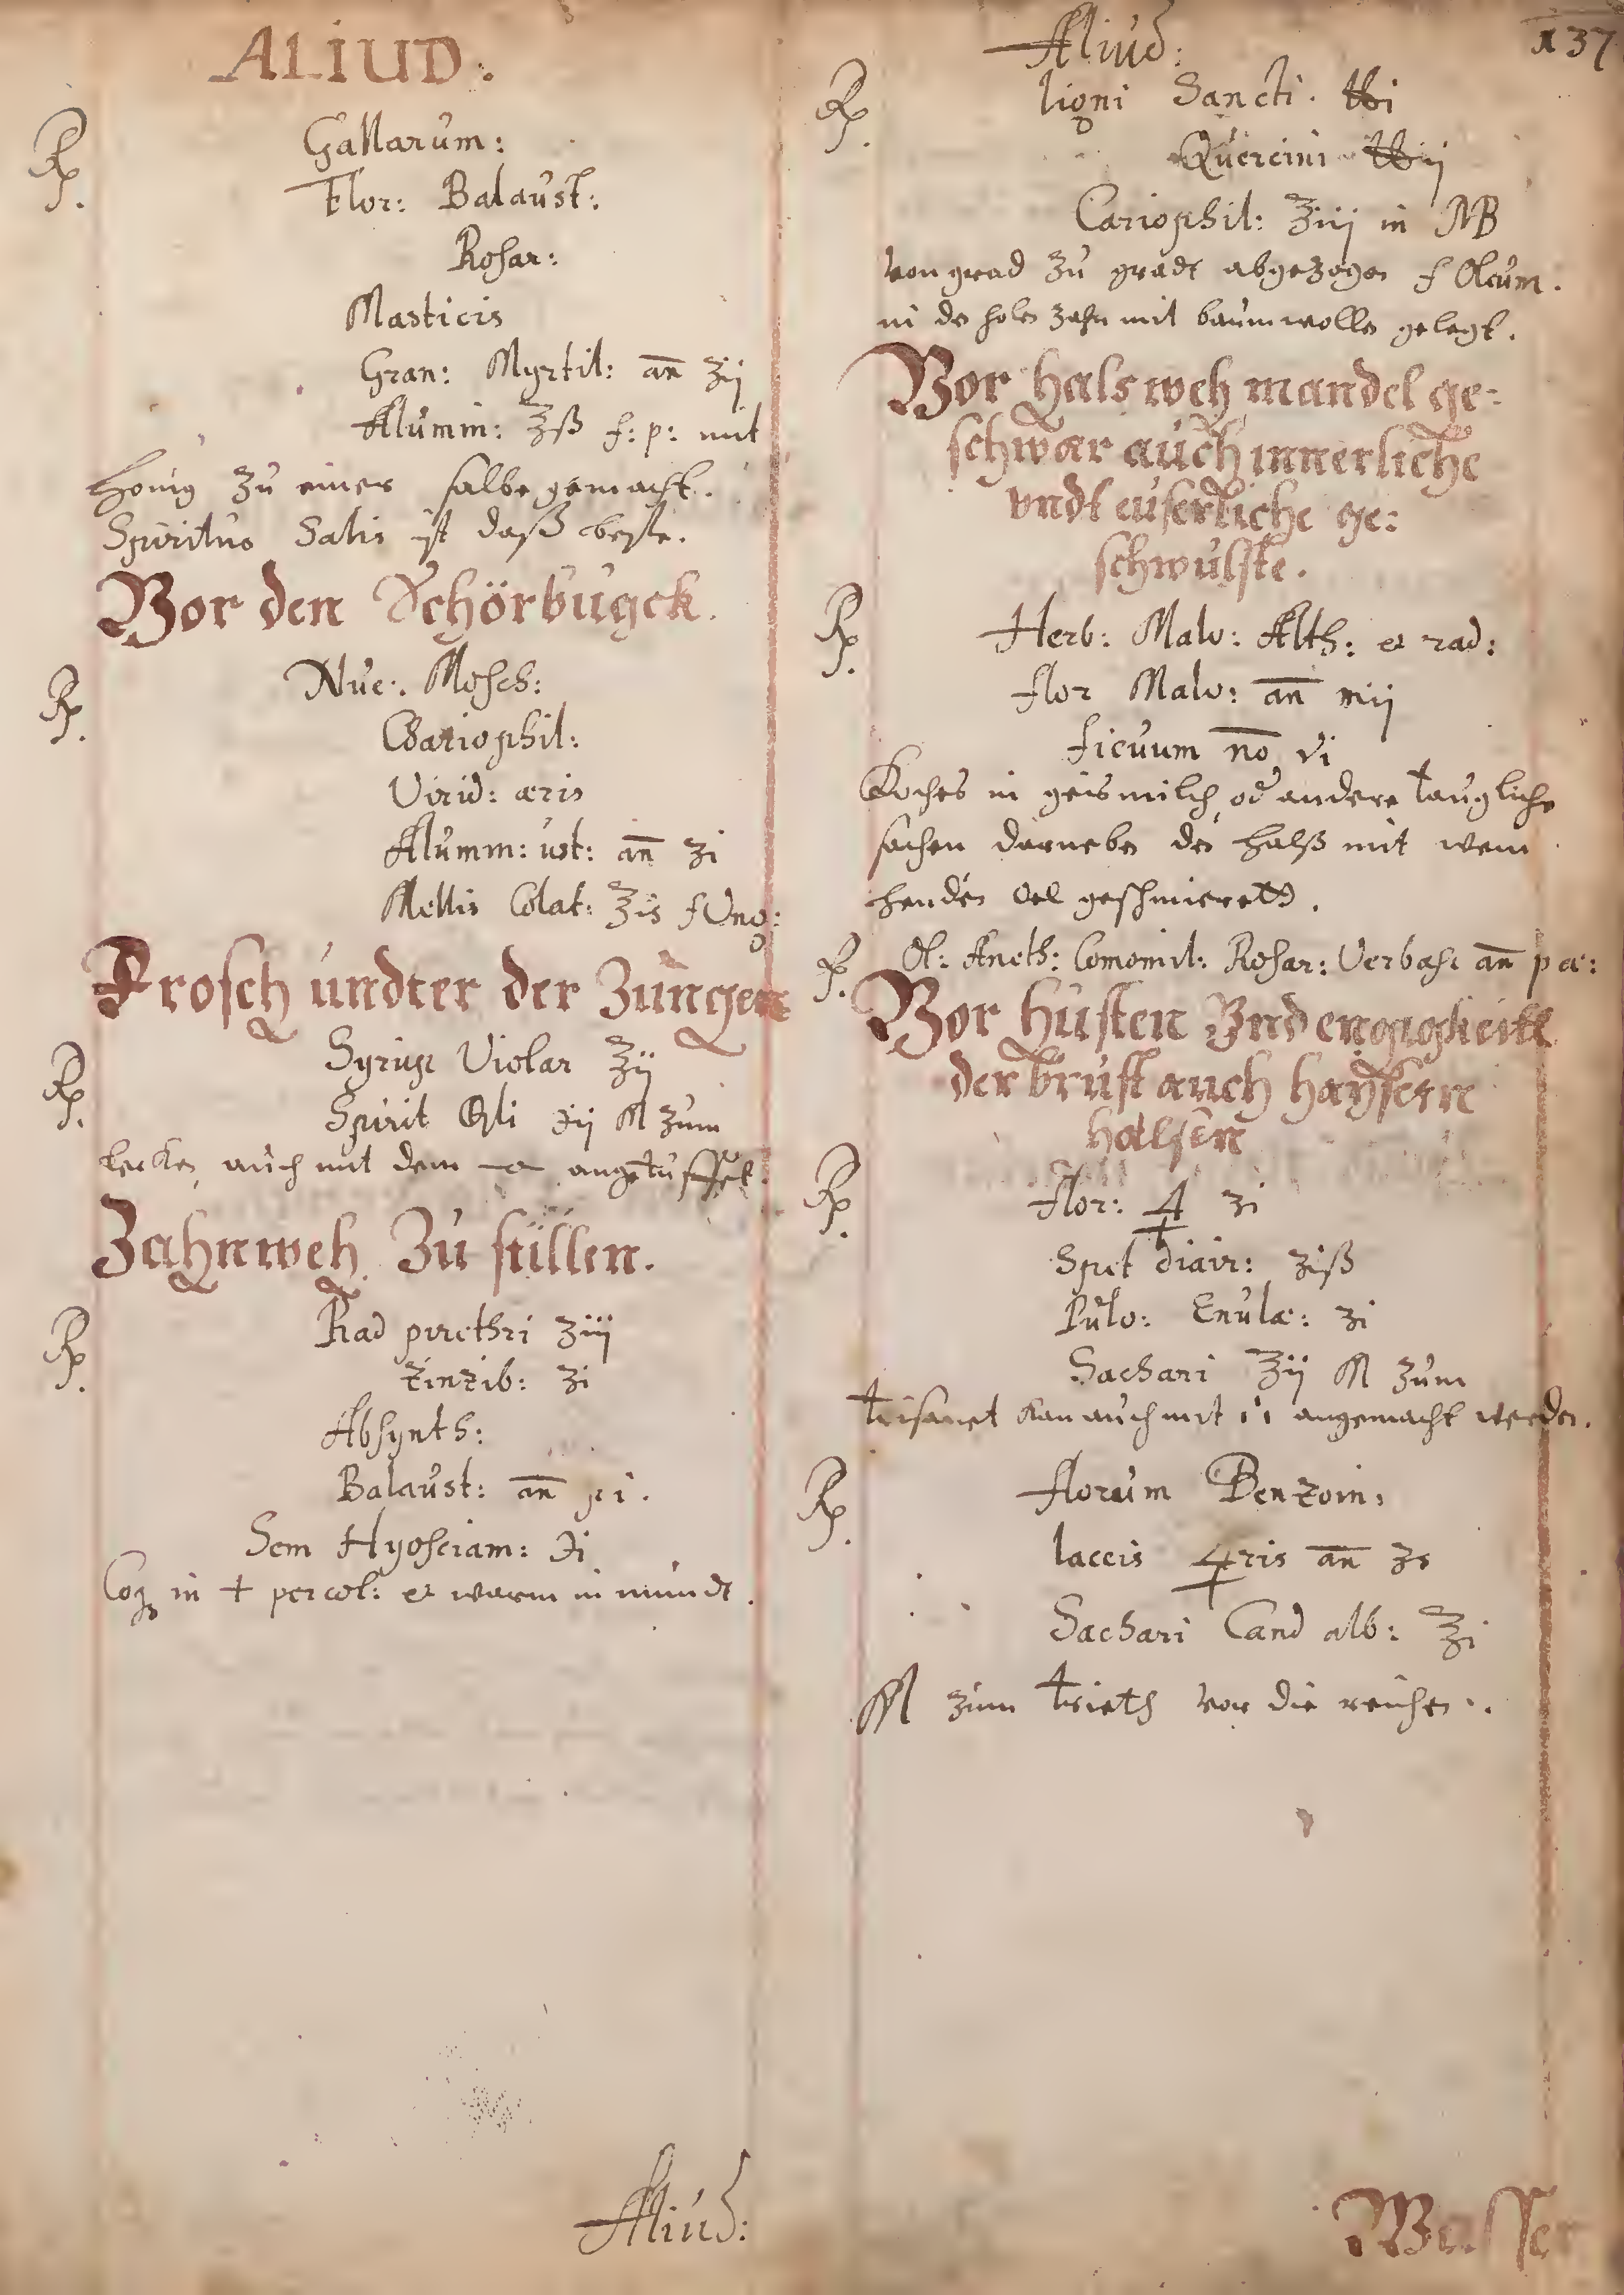 ALIUD.
Rp. Gallarum:
Flor: Balaust:
Rosar:
Masticis
Gran: Myrtil: an̄ ʒij
Alumin: ℥ß f: p: mit
honig zu einer salbe gemacht.
Spiritus Salis ist daß beste.
Vor den Schörbugck.
Rp. Nuc: Mosch:
Cariophil:
Virid: æris
Alumin: ust: an̄ ʒi
Mellis Colat: ℥is f Ung:
Frosch undter der Zungen
Rp. Syrup Violar ℥ij
Spirit ij M zum
lecken, auch mit dem angetupffet.
Zahnweh Zu stillen.
Rp. Rad pirethri ʒiij
Zinzib: ʒi
Absynth:
Balaust: an̄ pi.
Sem Hyosciam: ℈i
Coq in + percol: et warm in mundt.
Aliud:
137
Aliud:
Rp. ligni Sancti. ℔i
Quercini ℔ij
Cariophil: ℥iij in MB
von grad zu gradt abgezogen f Oleum.
in de holen zahn mit baumwolle gelegt.
Vor halsweh mandel ge-
schwar auch innerliche
undt euserliche ge:
schwulste.
Rp. Herb: Malv: Alth: et rad:
flor Malv: an̄ mij
ficuum no vi
Kochs in geismilch, od andere taugliche
sachen darneben den halß mit
henden Oel geschmierett.
Rp. Ol: Aneth: Comomil: Rosar: Verbasc an̄ p æ:
Vor husten Vnd enggigkeitt
der brust auch haysern
halsen
Rp. flor: 🜍 ʒi
Spet diair: ʒiß
Pulv: Enulæ: ʒi
Sachari ℥ij M zum
trisanet kan auch mit angemacht werden.
Rp. florum Benzoin:
laccis 🜍ris an̄ ʒs
Sachari Cand alb: ℥i
M zum trieth vor die reichen.
Wasser